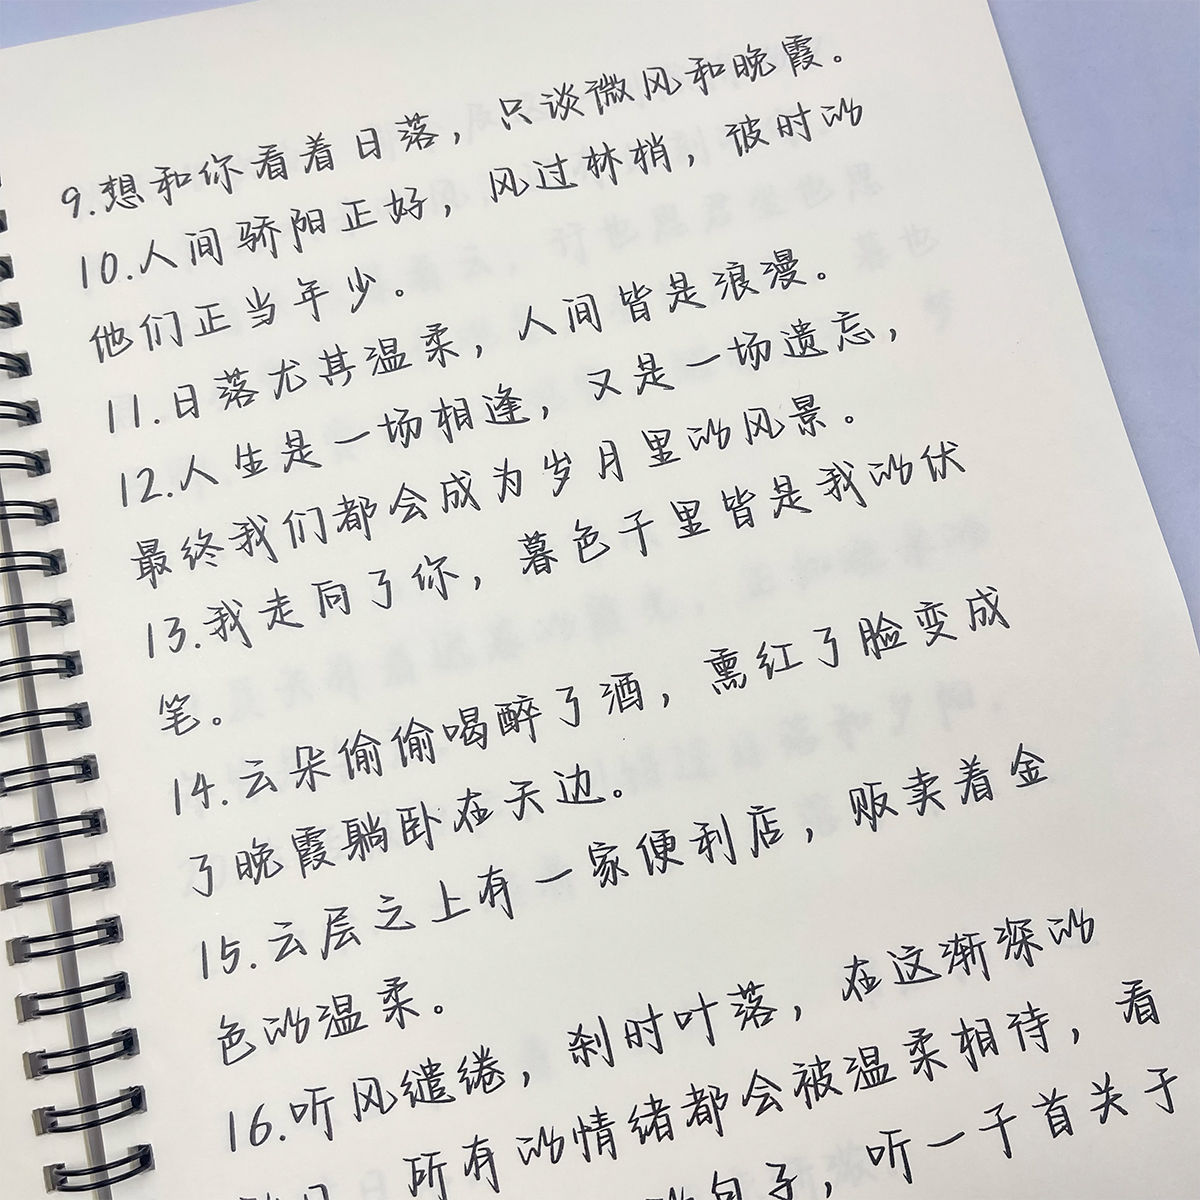 9.想和你看着日落，只谈微风和晚霞。
10.人间骄阳正好，风过林梢，彼时的
他们正当年少。
11.日落尤其温柔，人间皆是浪漫。
12.人生是一场相逢，又是一场遗忘，
最终我们都会成为岁月里的风景。
13.我走向了你，暮色千里皆是我的伏
笔。
14.云朵偷偷喝醉了酒，熏红了脸变成
了晚霞躺卧在天边。
15.云层之上有一家便利店，贩卖着金
色的温柔。
16.听风缱绻，刹时叶落，在这渐深的
所有的情绪都会被温柔相待，看
句子，听一千首关于